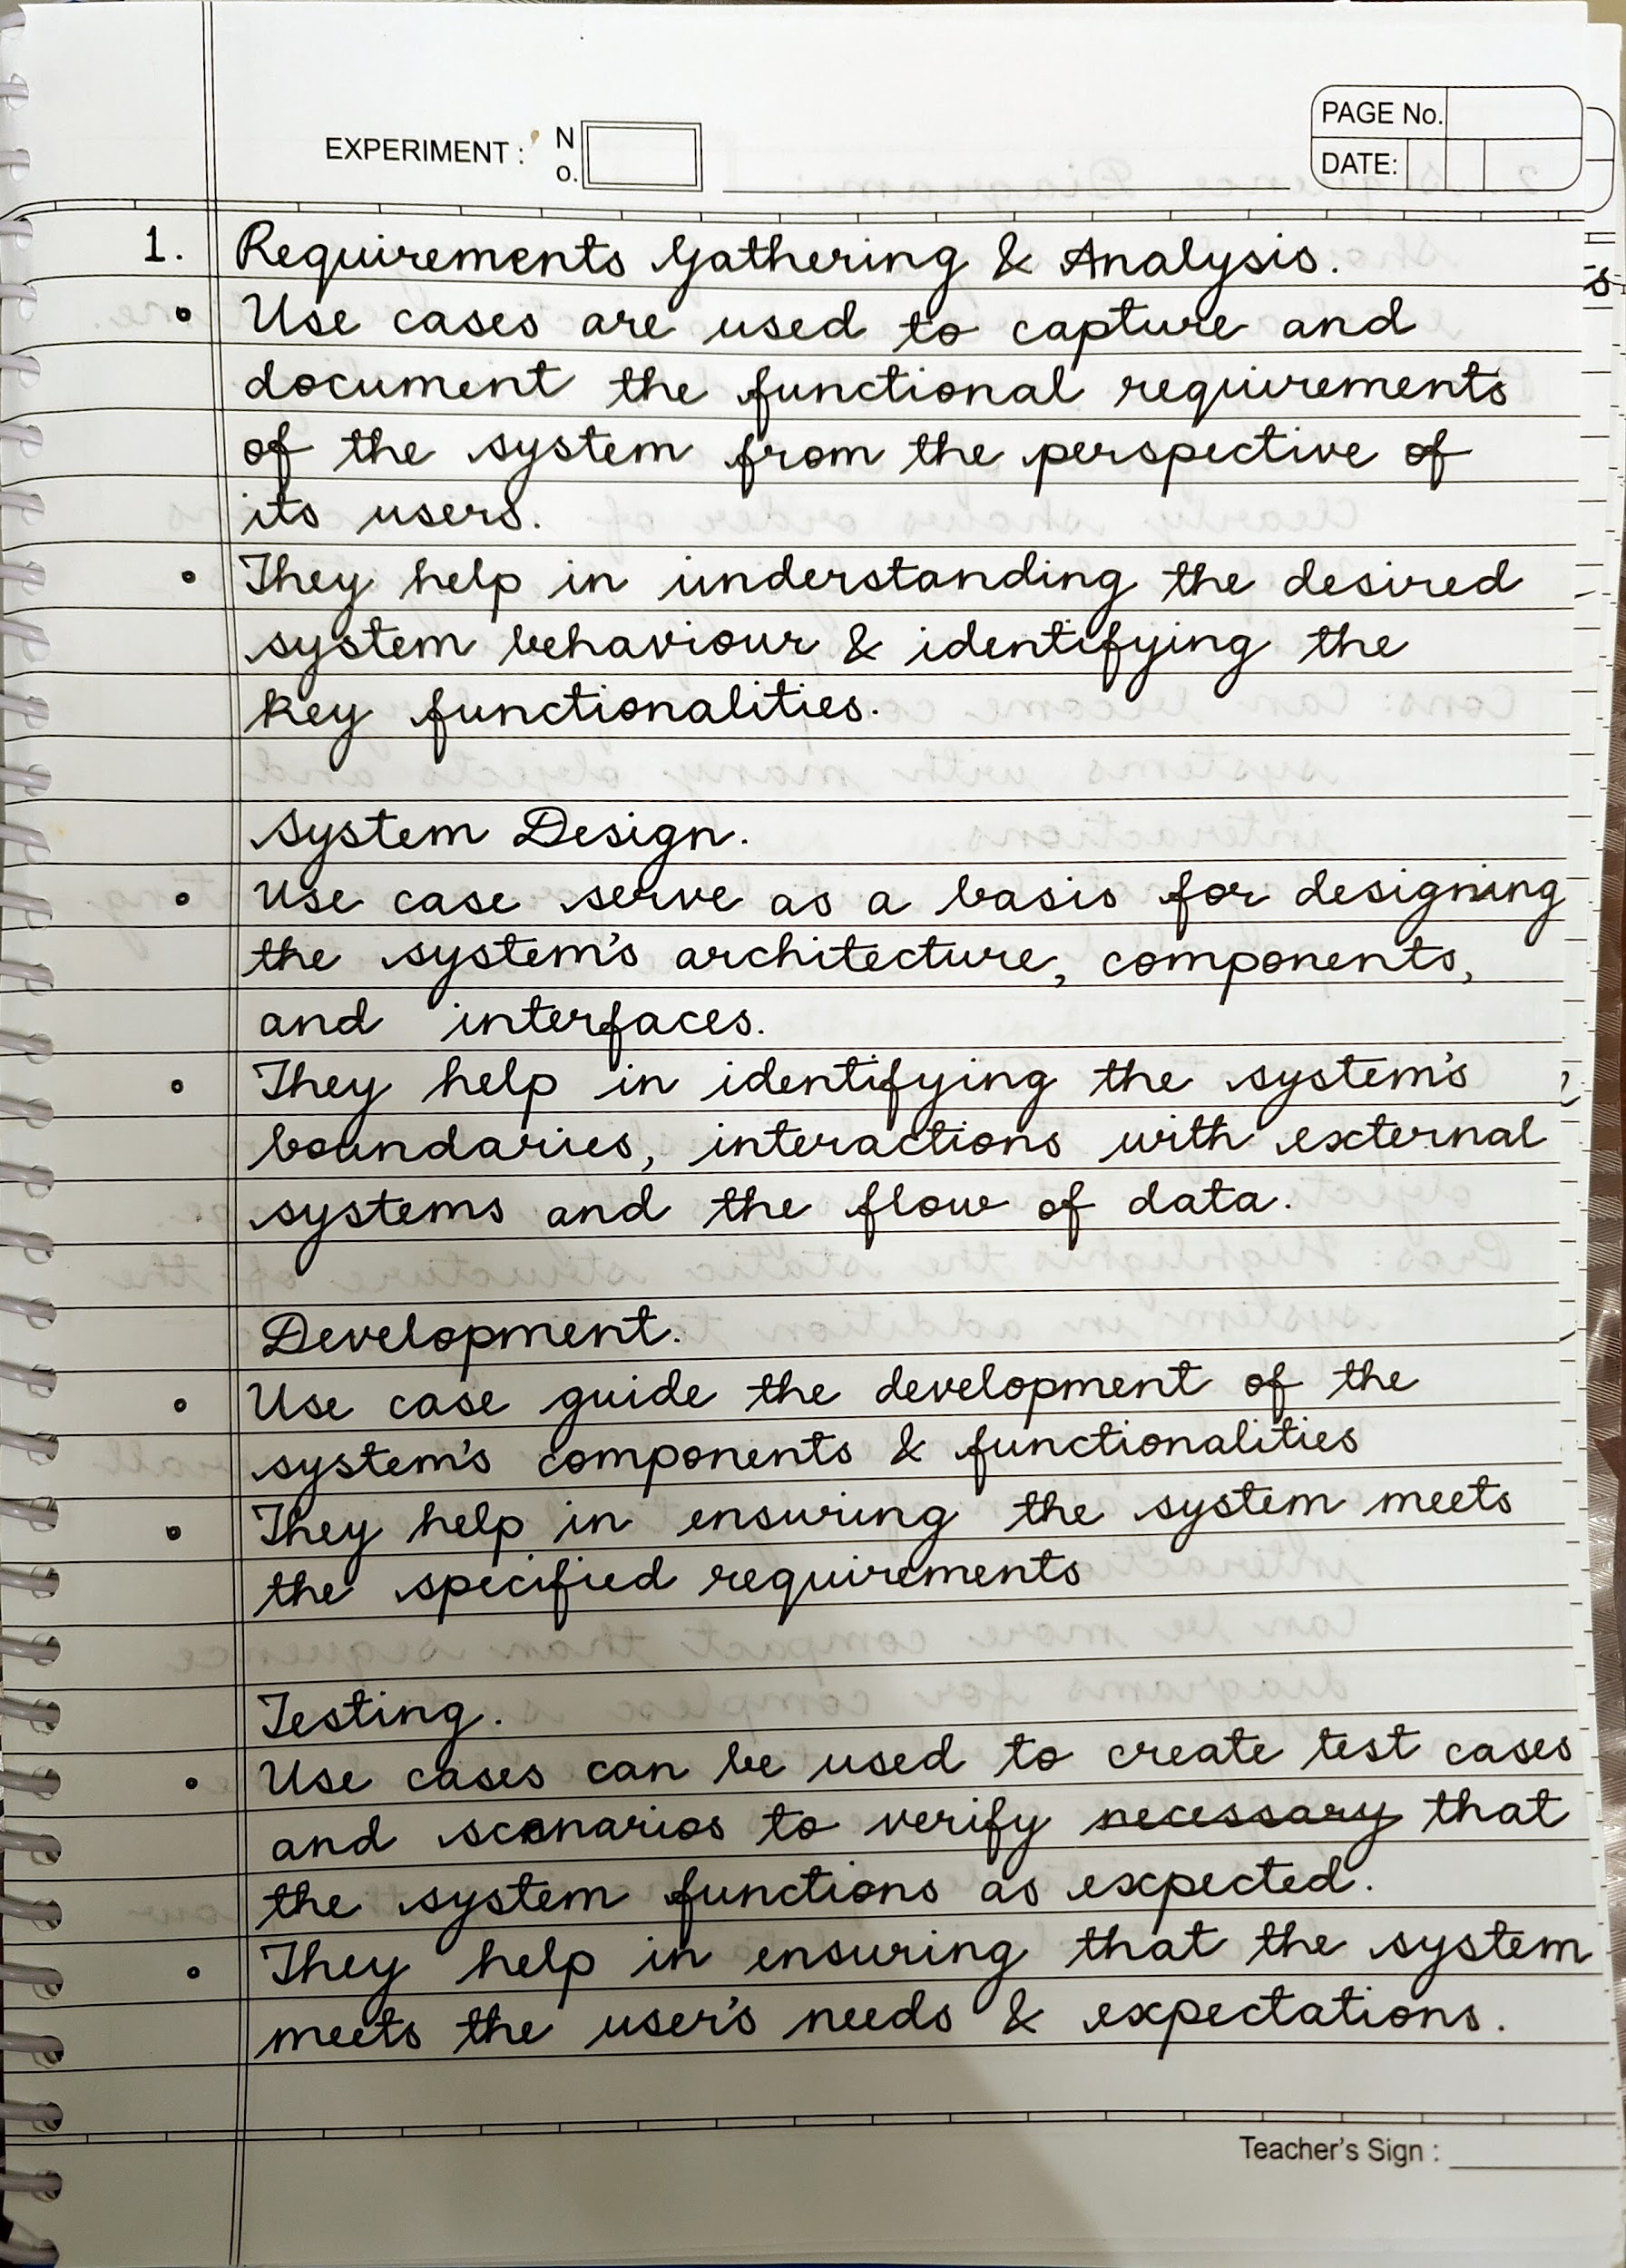 EXPERIMENT : No.
PAGE No.
DATE:
1. Requirements Gathering & Analysis.
• Use cases are used to capture and
document the functional requirements
of the system from the perspective of
its users.
• They help in understanding the desired
system behaviour & identifying the
key functionalities.
System Design.
• Use case serve as a basis for designing
the system's architecture, components,
and interfaces.
• They help in identifying the system's
boundaries, interactions with external
systems and the flow of data.
Development.
• Use case guide the development of the
system's components & functionalities
• They help in ensuring the system meets
the specified requirements
Testing.
• Use cases can be used to create test cases
and scenarios to verify necessary that
the system functions as expected.
• They help in ensuring that the system
meets the user's needs & expectations.
Teacher's Sign :